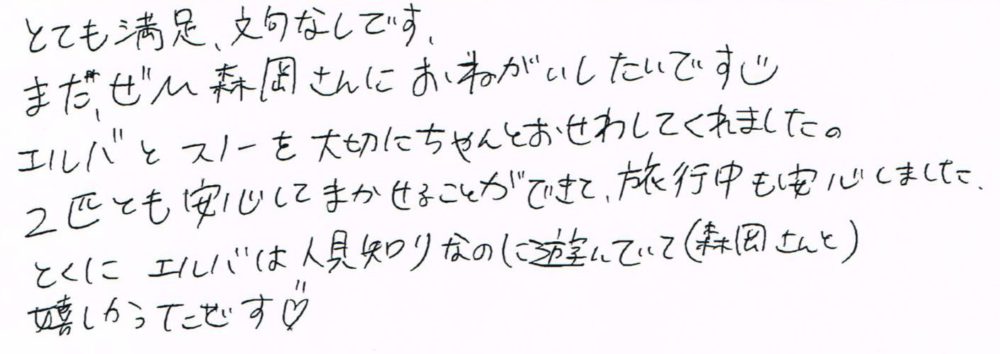 とても満足、文句なしです、
まだ、ぜひ森岡さんにおねがいしたいです
エルバとスノーを大切にちゃんとおせわしてくれました。
2匹とも安心してまかせることができて、旅行中も安心しました、
とくにエルバは人見知りなのに遊んでいて(森岡さんと)
嬉しかったです♡